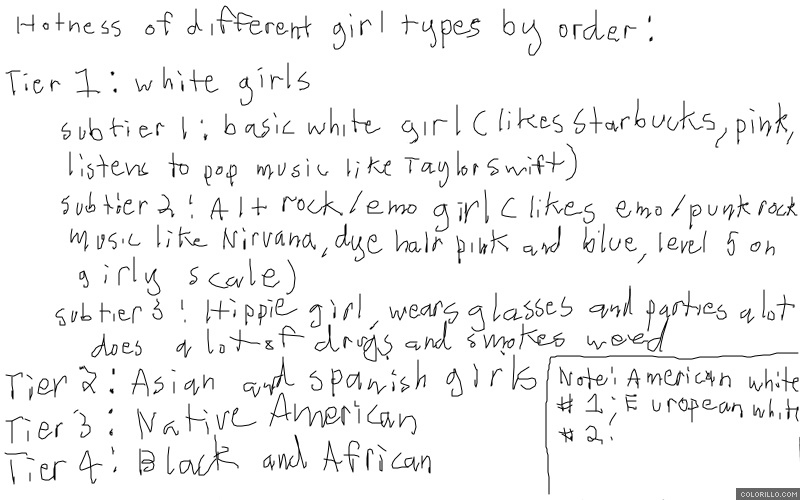 Hotness of different girl types by order:
Tier 1: white girls
subtier 1: basic white girl (likes Starbucks, pink,
listens to pop music like Taylor Swift)
subtier 2: Alt rock/emo girl (likes emo/punk rock
music like Nirvana, dye hair pink and blue, level 5 on
girly scale)
subtier 3: Hippie girl, wears glasses and parties a lot
does a lot of drugs and smokes weed
Tier 2: Asian and spanish girls
Tier 3: Native American
Tier 4: Black and African
Note: American white
# 1; European white
# 2.
COLORILLO.COM